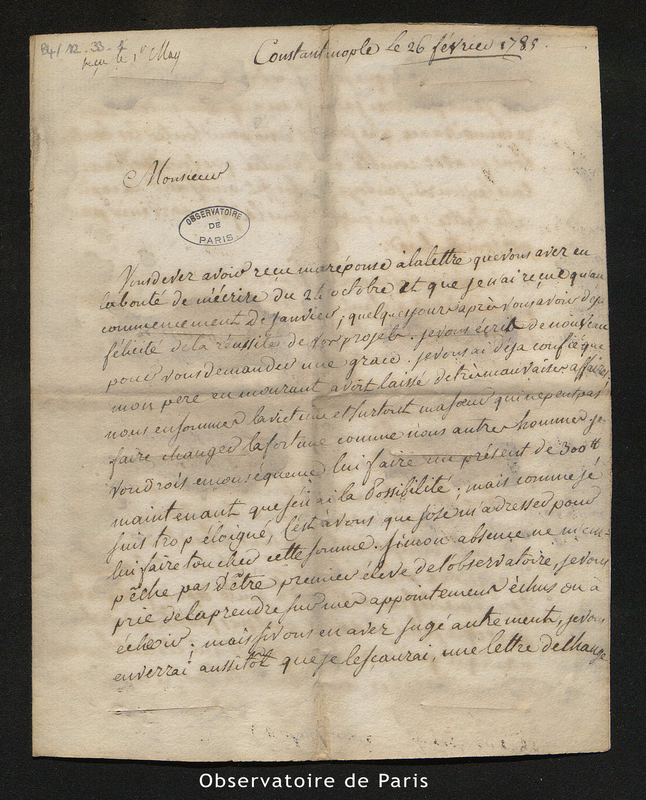 B4/12-33-f
reçu le 1r May
Constantinople le 26 février 1785.
Monsieur
OBSERVATOIRE
DE
PARIS
Vous devez avoir reçu ma réponse à la lettre que vous avez eu
la bonté de m'écrire du 24 octobre et que je n'ai reçue qu'au
commencement de janvier; quelques jours après vous avoir déja
félicité de la réussite de vos projets. je vous écris de nouveau
pour vous demander une grace. je vous ai déja confié que
mon père en mourant avoit laissé de très mauvaises affaires,
nous en sommes la victime et surtout ma soeur qui ne peut pas
faire changer la fortune comme nous autres hommes. je
voudrois en conséquence lui faire un présent de 300 tt
maintenant que j'en ai la possibilité; mais comme je
suis trop éloigné, c'est à vous que j'ose m'adresser pour
lui faire toucher cette somme. Si mon absence ne m'em-
pêche pas d'être premier élève de l'observatoire, je vous
prie de la prendre sur mes appointemens échus ou à
écheoir; mais si vous en avez jugé autrement, je vous
enverrai aussitôt que je le sçaurai, une lettre de change
Observatoire de Paris